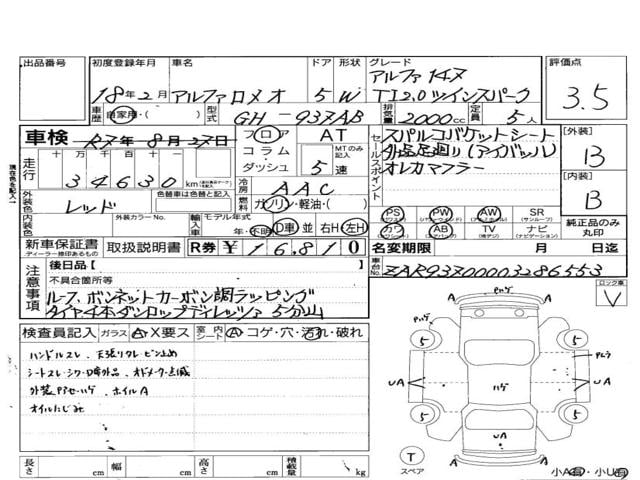 出品番号
初度登録年月 車名 ドア 形状 グレード 評価点
18年2月 アルファロメオ 5 W アルファ147 TI2.0ツインスパーク 3.5
車歴 自家用・( ) 型式 GH-937AB 排気量 2000cc 定員 5人
車検 R7年8月27日 フロア コラム ダッシュ AT MTのみ記入 5速
セールスポイント
スパルコバケットシート
外品足廻り(アイバッハ)
オレカマフラー
[外装] B
[内装] B
現在色を記入
走行 十万 万 千 百 十 一
34630 km
冷房 AAC
外装色 レッド 色替車は色替と記入
燃料 ガソリン・軽油・( )
内装色 外装カラーNo. 輸入車 モデル年式 年 不明 D車 並 右H 左H
PS PW AW SR(サンルーフ)
カワ AB TV ナビ(ナビゲーション)
純正品のみ丸印
新車保証書 取扱説明書 R券 ¥16.810
ディーラー捺印あるもの
名変期限 月 日迄
注意事項
後日品[ ]
不具合箇所等
ルーフ、ボンネットカーボン調ラッピング
タイヤ4本ダンロップディレッツァ5分山
車台No. ZAR93700003286553
ロック車 V
検査員記入 ガラス A X要ス 室内シート A コゲ・穴・汚れ・破れ
ハンドルスレ、天張リタレピン止め
オドメーター点滅
外装P7セハゲ、ホイルA
オイルにじみ
長さ cm 幅 cm 高さ cm 積載量 kg
Pハゲ
A A
Pハゲ
5 5
Pムラ
UA ハゲ UA
5 5
A UA A
T
スペア
小A有・小U有